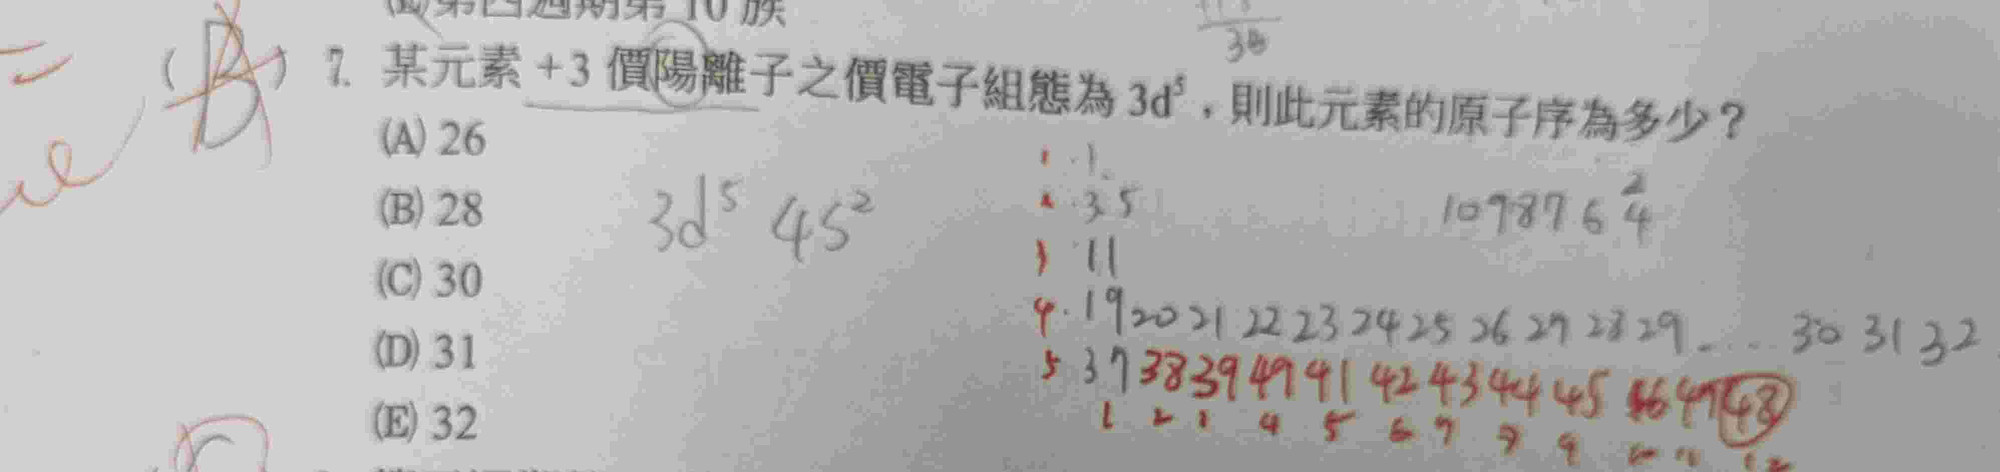 (E)第四週期第 10 族
38
(A) 7. 某元素 +3 價陽離子之價電子組態為 3d⁵，則此元素的原子序為多少？
(A) 26
(B) 28
(C) 30
(D) 31
(E) 32
3d⁵ 4s²
1 · 1
2 · 3 5
3 · 11
4 · 19 20 21 22 23 24 25 26 27 28 29 . . . . 30 31 32
5 37 38 39 49 41 42 43 44 45 46 47 48
1 2 3 4 5 6 7 8 9 10 11 12
10 9 8 7 6 2 4